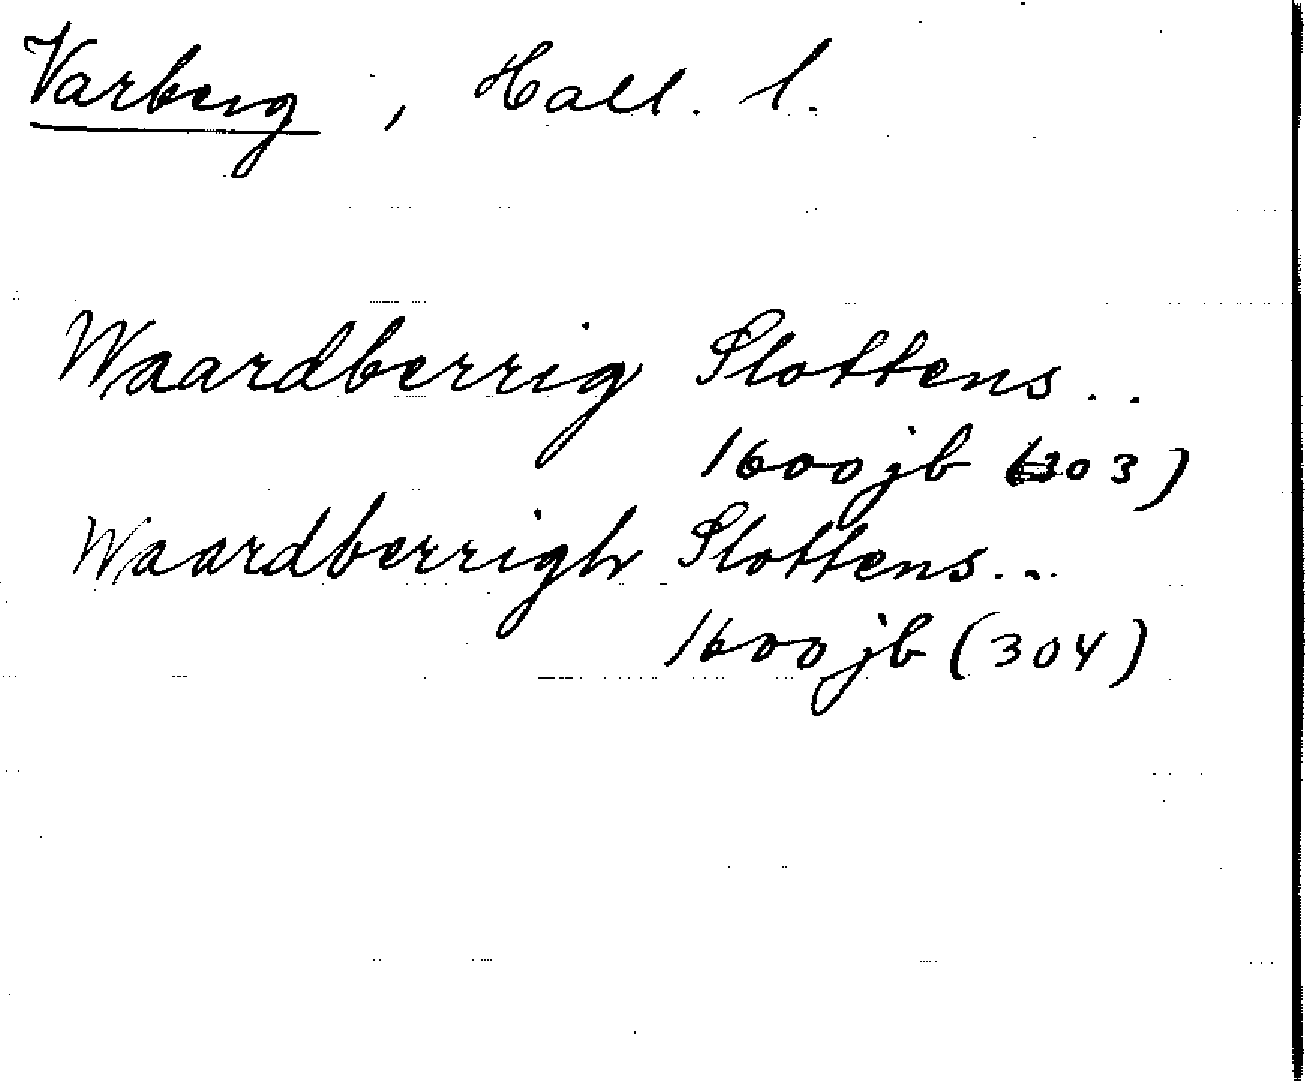 Varberg, Hall. l.
Waardberrig Slottens..
1600 jb (303)
Waardberrigh Slottens...
1600 jb (304)